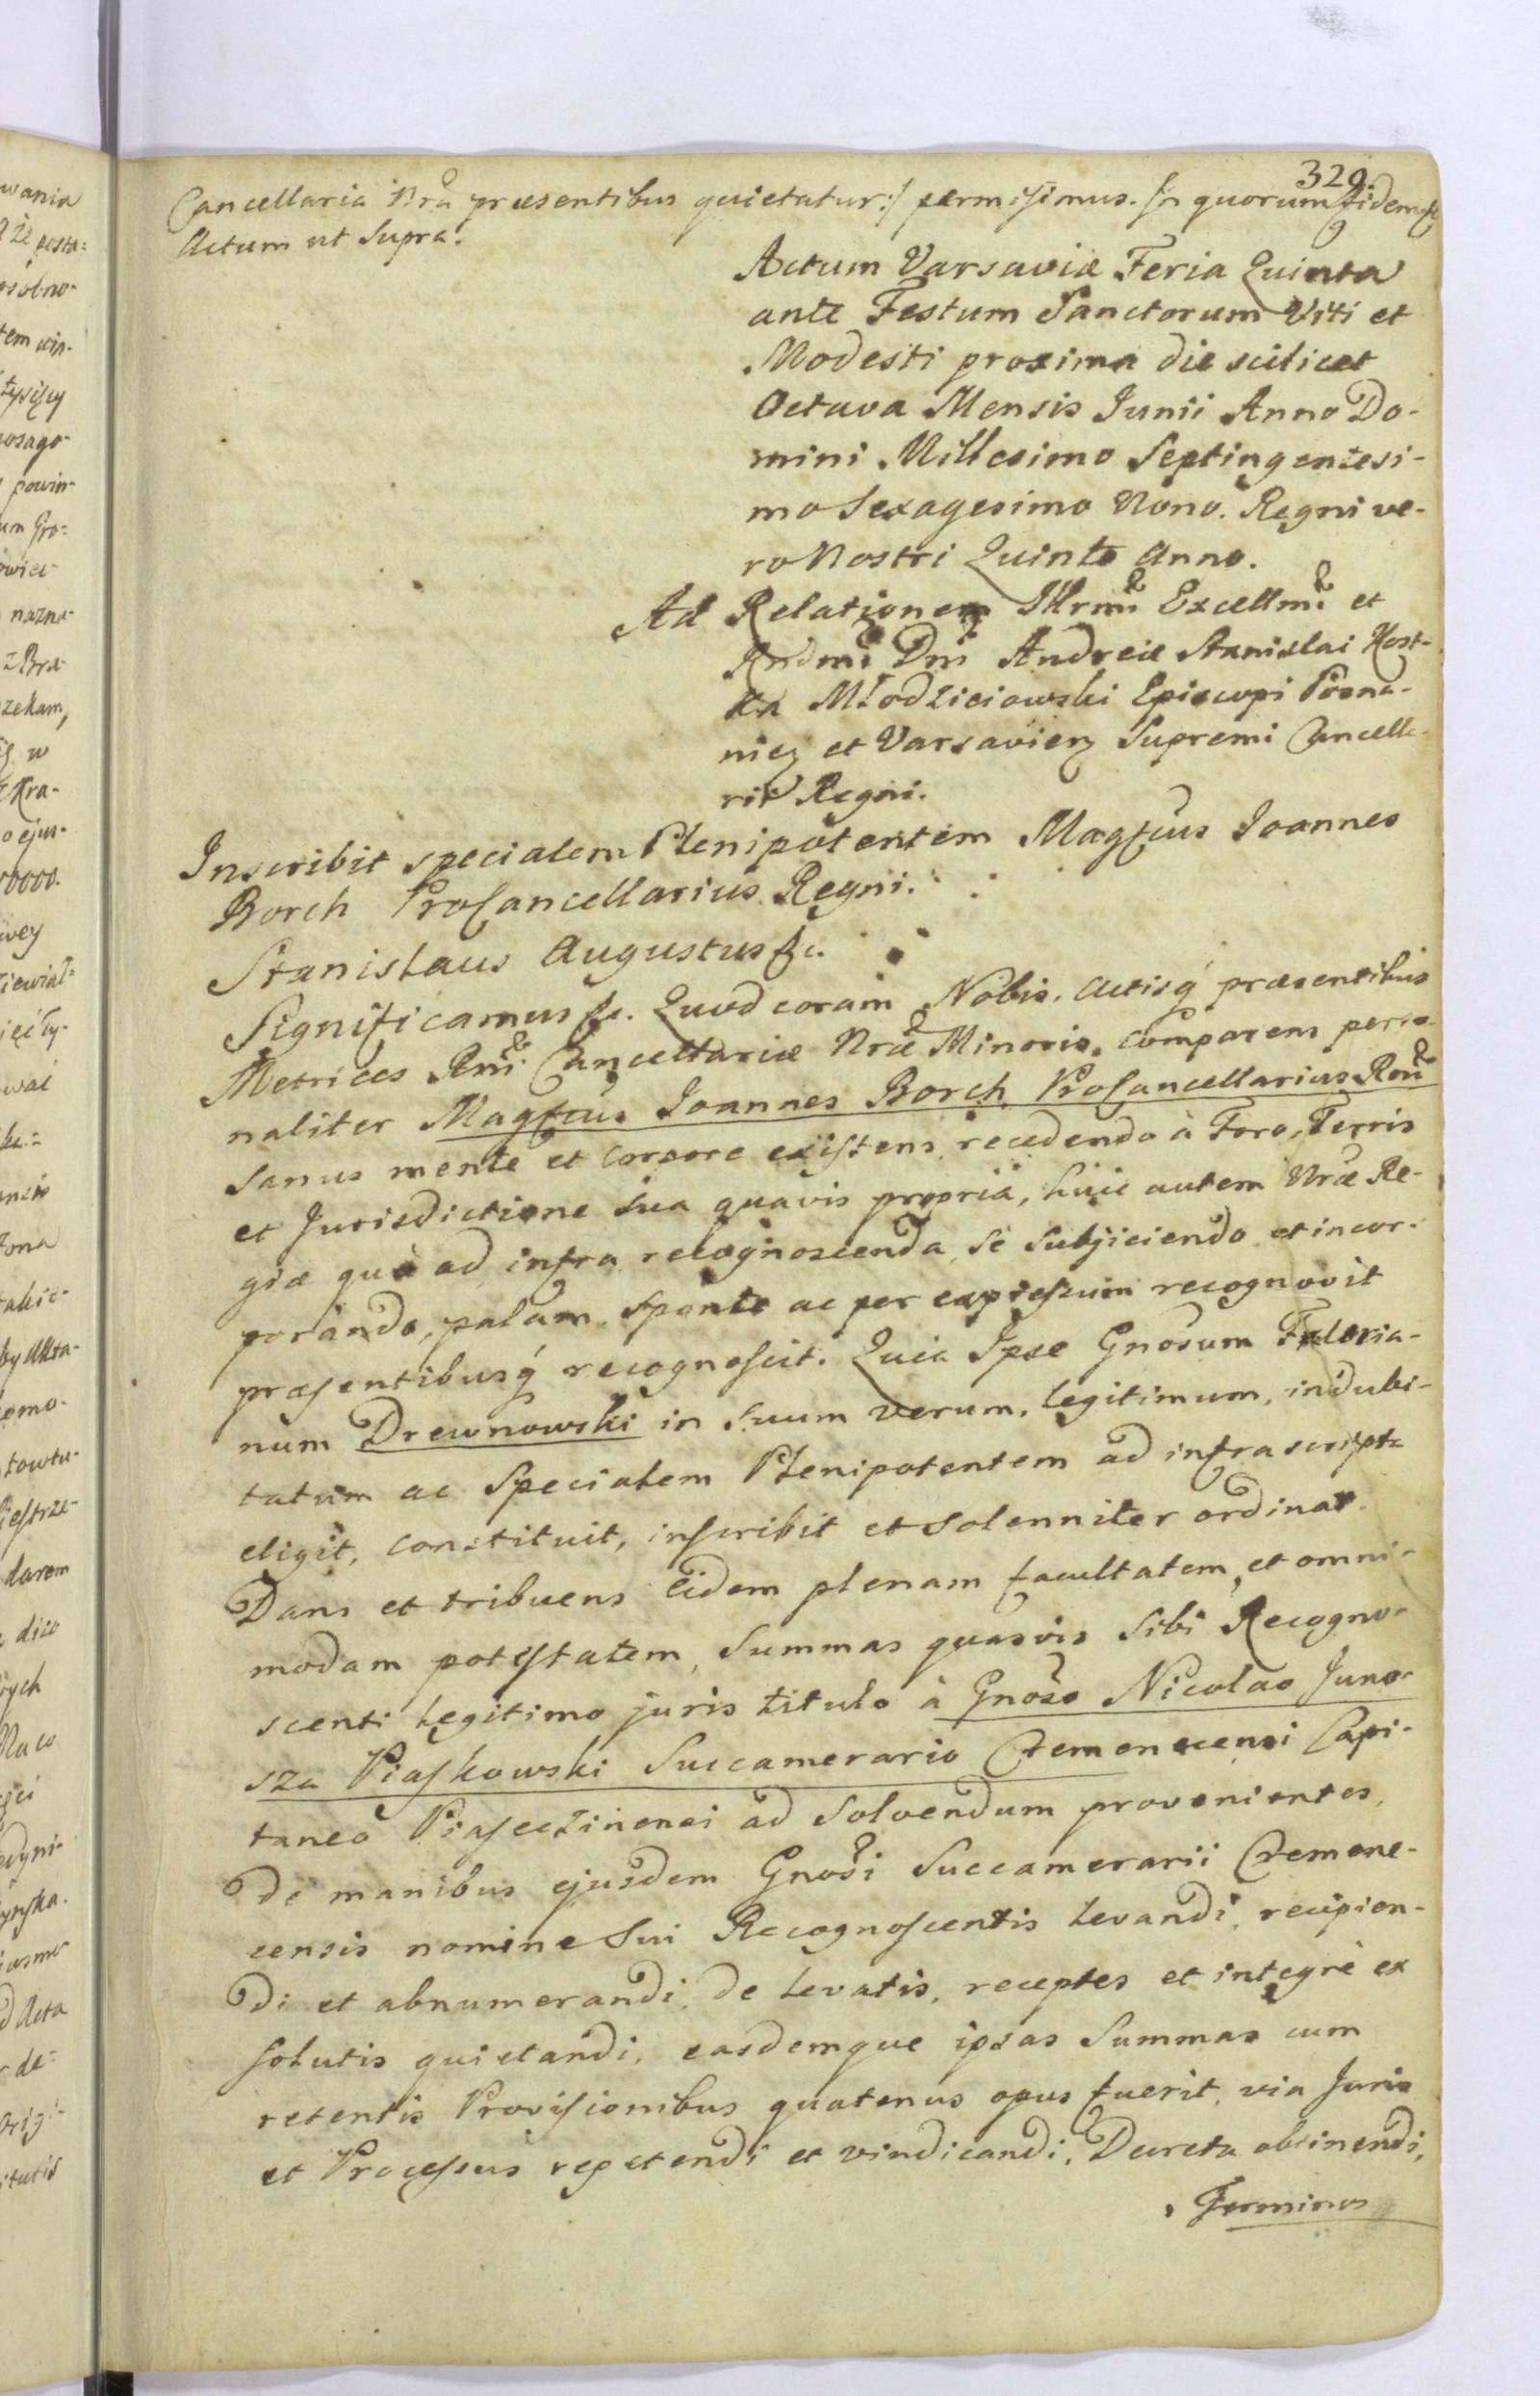 329.
Cancellaria Nra præsentibus quietatur:/ permisimus. In quorum fidem &c
Actum ut Supra.
Actum Varsaviæ Feria Quinta
ante Festum Sanctorum Viti et
Modesti proxima die scilicet
Octava Mensis Junii Anno Do-
mini Millesimo Septingentesi-
mo Sexagesimo Nono. Regni ve-
ro Nostri Quinto Anno.
Ad Relationem Illrmi Excellmi et
Rndmi Dni Andreæ Stanislai Kost-
ka Młodzieiowski Episcopi Posna-
nien et Varsavien Supremi Cancella-
rii Regni.
Inscribit specialem Plenipotentem Magfcus Joannes
Borch ProCancellarius Regni.
Stanislaus Augustus &c.
Significamus &c. Quod coram Nobis, Actisq præsentibus
Metrices Rni Cancellariæ Nræ Minoris, comparens perso-
naliter Magfcus Joannes Borch ProCancellarius Rni
Sanus mente et corpore existens, recedendo à Foro, Terris
et Jurisdictione sua quavis propriâ, huic autem Nræ Re-
giæ quò ad infra recognoscenda, se subjiciendo et incor-
porando, palam, sponte ac per expressum recognovit
præsentibusq recognoscit. Quia Ipse Gnosum Faloria-
num Drewnowski in Suum verum, legitimum, indubi-
tatum ac Specialem Plenipotentem ad infrascripta
eligit, constituit, inscribit et solenniter ordinat.
Dans et tribuens Eidem plenam facultatem, et omni-
modam potestatem, Summas quasvis Sibi Recogno-
scenti legitimo juris titulo à Gnoso Nicolao Juno-
sza Piaskowski Succamerario Cremenecensi Capi-
taneo Piasectinensi ad Solvendum provenientes,
de manibus ejusdem Gnosi Succamerarii Cremene-
censis nomine Sui Recognoscentis levandi, recipien-
di et abnumerandi, de levatis, receptes et integrè ex
solutis quietandi, easdemque ipsas Summas cum
retentis Provisionibus quatenus opus fuerit, via Juris
et Processus repetendi et vindicandi, Decreta obtinendi,
Terminos
wania
osobno-
tysięcy
powin-
nazna-
zekam,
w
Kra-
o ejus-
wey
wai
takie-
tomo-
darem
dico
Acta
de-